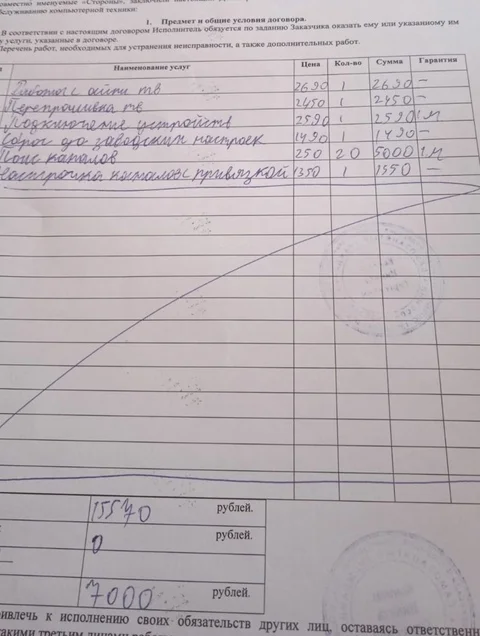 овместно именуемые «Стороны», заключили
бслуживанию компьютерной техники:
1. Предмет и общие условия договора.
В соответствии с настоящим договором Исполнитель обязуется по заданию Заказчика оказать ему или указанному им
у услуги, указанные в договоре.
Перечень работ, необходимых для устранения неисправности, а также дополнительных работ.
Наименование услуг Цена Кол-во Сумма Гарантия
Работа с айпи тв 2690 1 2690 —
Перепрошивка тв 2450 1 2450 —
Подключение устройств 2590 1 2590 1м
Сброс до заводских настроек 1490 1 1490 —
Поис каналов 250 20 5000 1м
настройка каталов с привязкой 1350 1 1350 —
15570 рублей.
0 рублей.
7000 рублей.
ривлечь к исполнению своих обязательств других лиц, оставаясь ответственн
такими третьими лицами